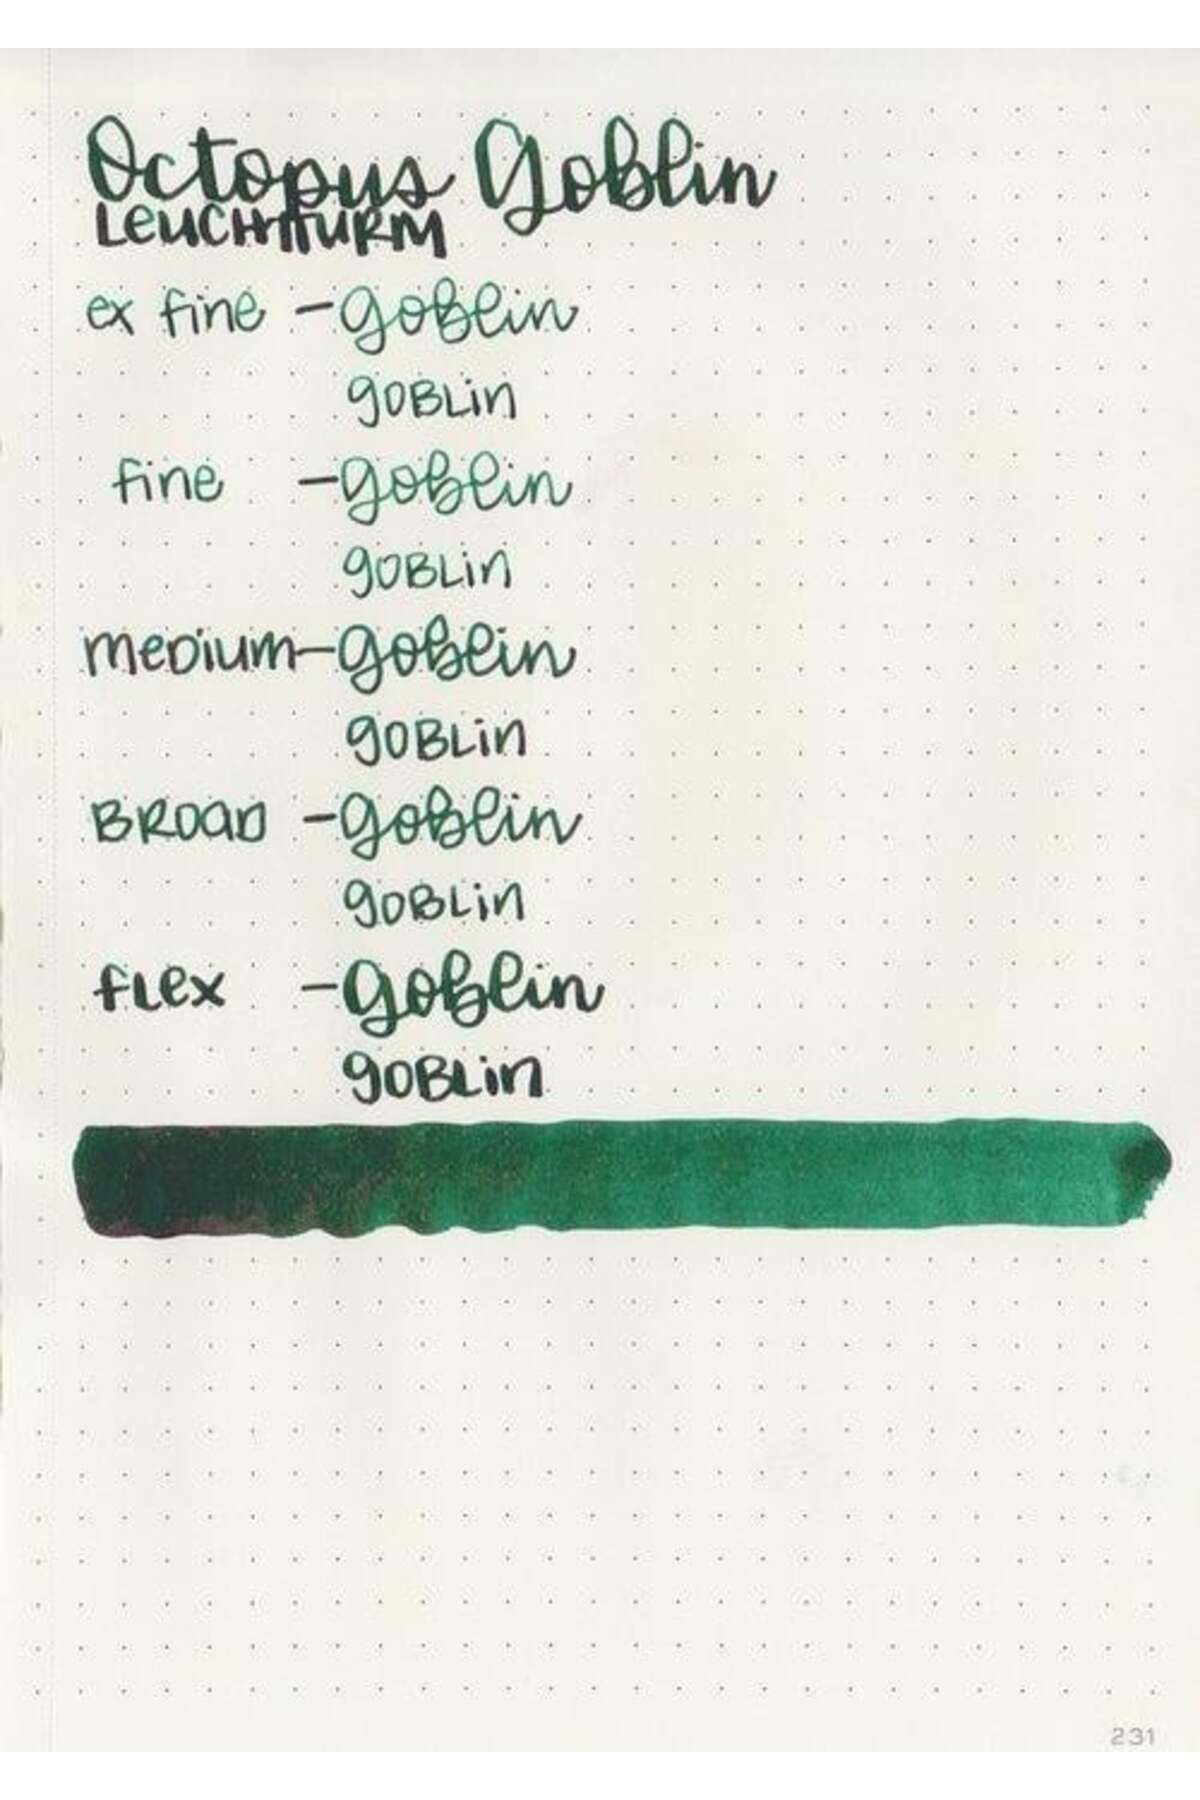 Octopus Goblin
LEUCHTTURM
ex fine - goblin
goBLin
fine - goblin
goBLin
meDium - goblin
goBLin
BROaD - goblin
goBLin
fLex - goblin
goBLin
231